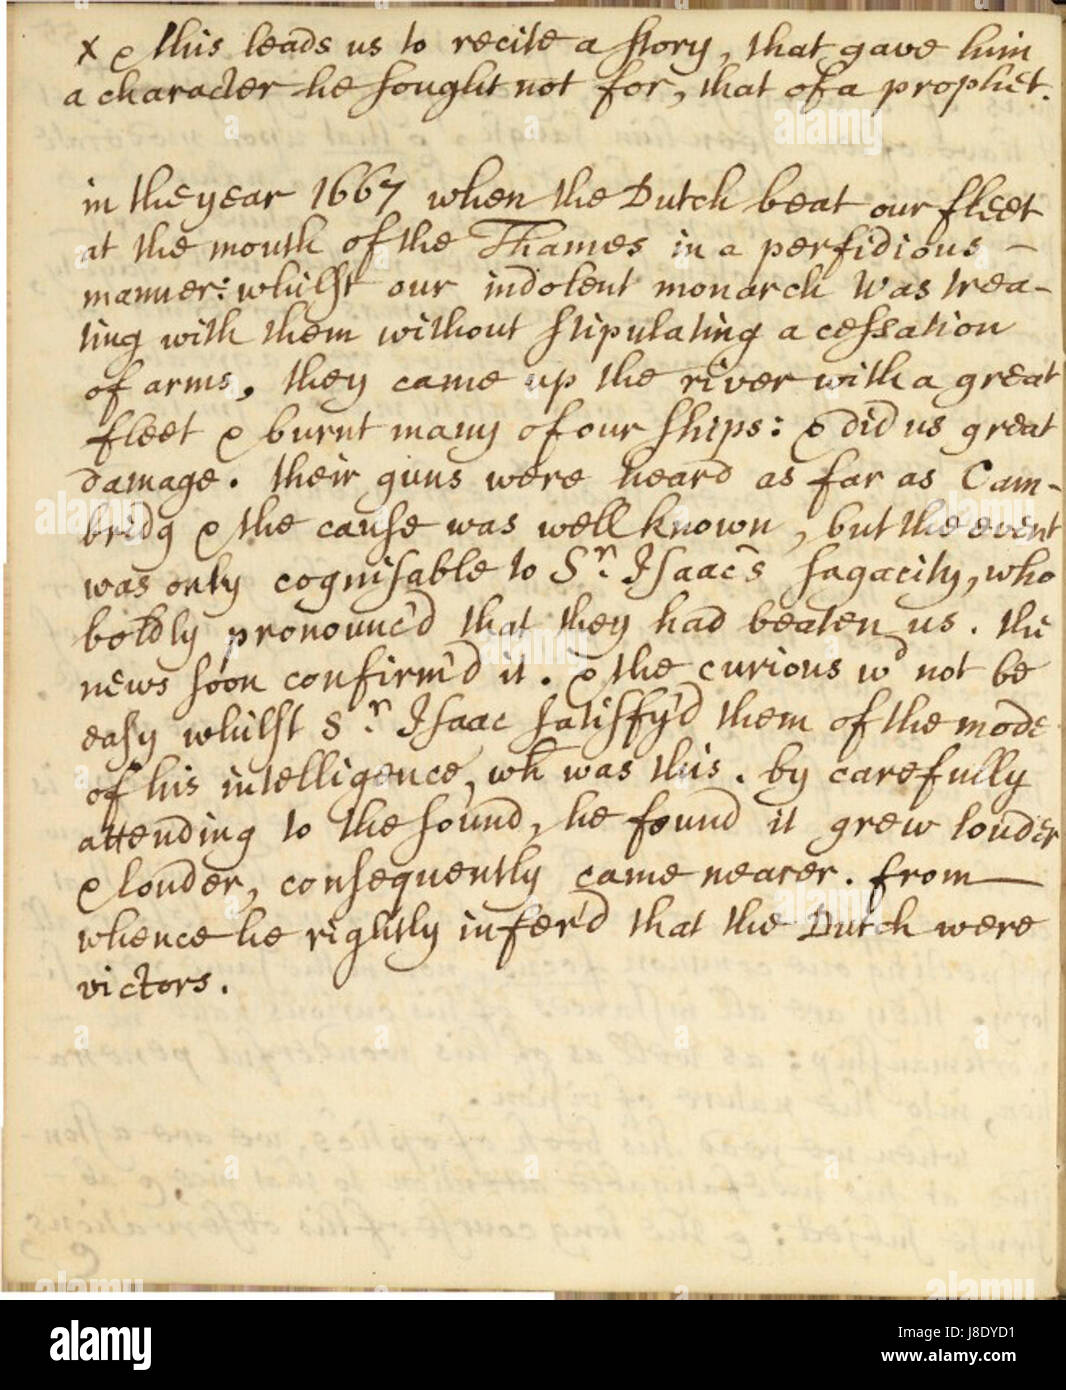 x & this leads us to recite a story, that gave him
a character he sought not for, that of a prophet.
in the year 1667 when the Dutch beat our fleet
at the mouth of the Thames in a perfidious –
manner: whilst our indolent monarch was trea-
ting with them without stipulating a cessation
of arms, they came up the river with a great
fleet & burnt many of our ships: & did us great
damage. their guns were heard as far as Cam-
bridg & the cause was well known, but the event
was only cognisable to Sr. Isaac's sagacity, who
boldly pronounc'd that they had beaten us. the
news soon confirm'd it. & the curious wd not be
easy whilst Sr. Isaac satisfy'd them of the mode
of his intelligence, wh was this. by carefully
attending to the sound, he found it grew louder
& louder, consequently came nearer. from —
whence he rightly infer'd that the Dutch were
victors.
alamy
Image ID: J8DYD1
www.alamy.com